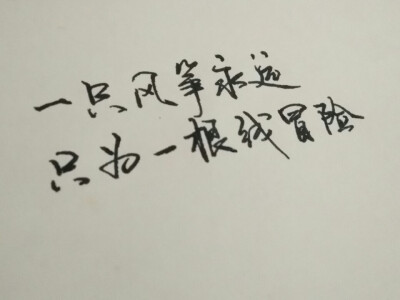 一只风筝永远
只为一根线冒险